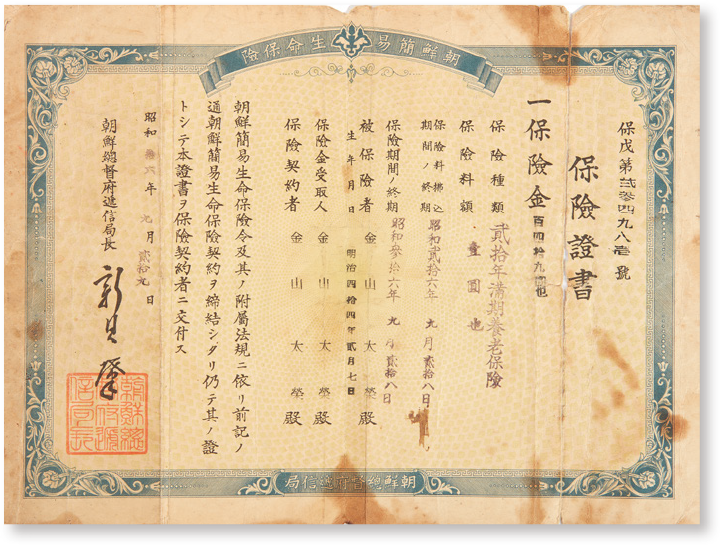 朝鮮簡易生命保險
保戊第貳參四九八壱號
保險證書
一保險金百四拾九圓也
保險種類 貳拾年滿期養老保險
保險料額 壹圓也
保險料拂込期間ノ終期 昭和貳拾六年九月貳拾八日
保險期間ノ終期 昭和參拾六年九月貳拾八日
被保險者 金山太榮殿
生年月日 明治四拾四年貳月七日
保險金受取人 金山太榮
保險契約者 金山太榮殿
朝鮮簡易生命保險令及其ノ附屬法規ニ依リ前記ノ
通朝鮮簡易生命保險契約ヲ締結シタリ仍テ其ノ證
トシテ本證書ヲ保險契約者ニ交付ス
昭和拾六年九月貳拾九日
朝鮮總督府遞信局長
朝鮮總督府遞信局